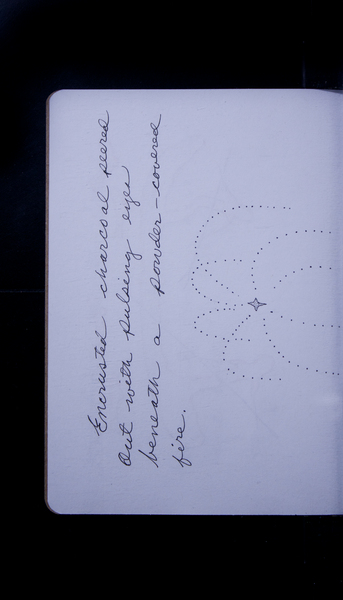 Encrusted charcoal peered
out with pulsing eyes
beneath a powder-covered
fire.